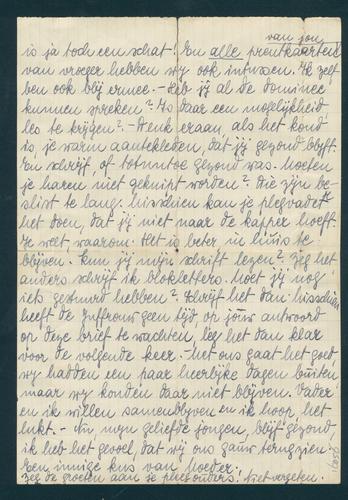 van jou
is ja toch een schat! En alle prentkaarten
van vroeger hebben wij ook intussen. Ik zelf
ben ook blij ermee. - Heb jij al de dominee
kunnen spreken? Is daar een mogelijkheid
les te krijgen? - Denk eraan, als het koud
is, je warm aantekleden, dat jij gezond blijft.
En schrijf, of tot nu toe gezond was. Moeten
je haren niet geknipt worden? Die zijn be-
slist te lang. Misschien kan je pleegvader
het doen, dat jij niet naar de kapper hoeft.
Je weet, waarom. Het is beter in huis te
blijven. Kun jij mijn schrift lezen? Zeg het
anders schrijf ik blokletters. Moet jij nog
iets gestuurd hebben? Schrijf het dan. Misschien
heeft de Juffrouw geen tijd op jouw antwoord
op deze brief te wachten, leg het dan klaar
voor de volgende keer. - Met ons gaat het goed
wij hadden een paar heerlijke dagen buiten
maar wij konden daar niet blijven. Vader
en ik willen samenblijven en ik hoop het
lukt. - Nu mijn geliefde jongen, blijf gezond,
ik heb het gevoel, dat wij ons gauw terugzien.
Een innige kus van Moeder.
Zeg de groeten aan je pleegouders! Niet vergeten.